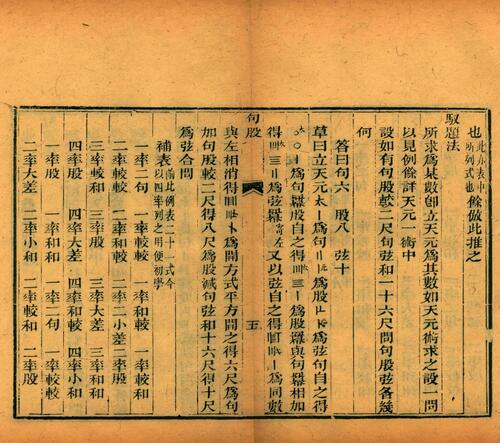 也此亦表中所列式也餘倣此推之
馭題法
所求爲某數卽立天元爲其數如天元術求之設一問
以見例餘詳天元一術中
設如有句股較二尺句弦和一十六尺問句股弦各幾
何
答曰句六 股八 弦十
草曰立天元太爲句爲股爲弦句自之得
爲句冪股自之得爲股冪與句冪相加
得爲弦冪寄左又以弦自之得爲同數
句股 五
與左相消得爲開方式平方開之得六尺爲句
加句股較二尺得八尺爲股減句弦和十六尺得十尺
爲弦合問
補表前此例表二十一式今以四率列之用便初學
一率二句 一率和較 一率和較 一率較較
二率較和 二率和較 二率二小差 二率股
三率較和 三率股 三率大差 三率和和
四率股 四率大差 四率較和 四率小和
一率股 一率和和 一率二句 一率較較
二率大差 二率小和 二率較和 二率股